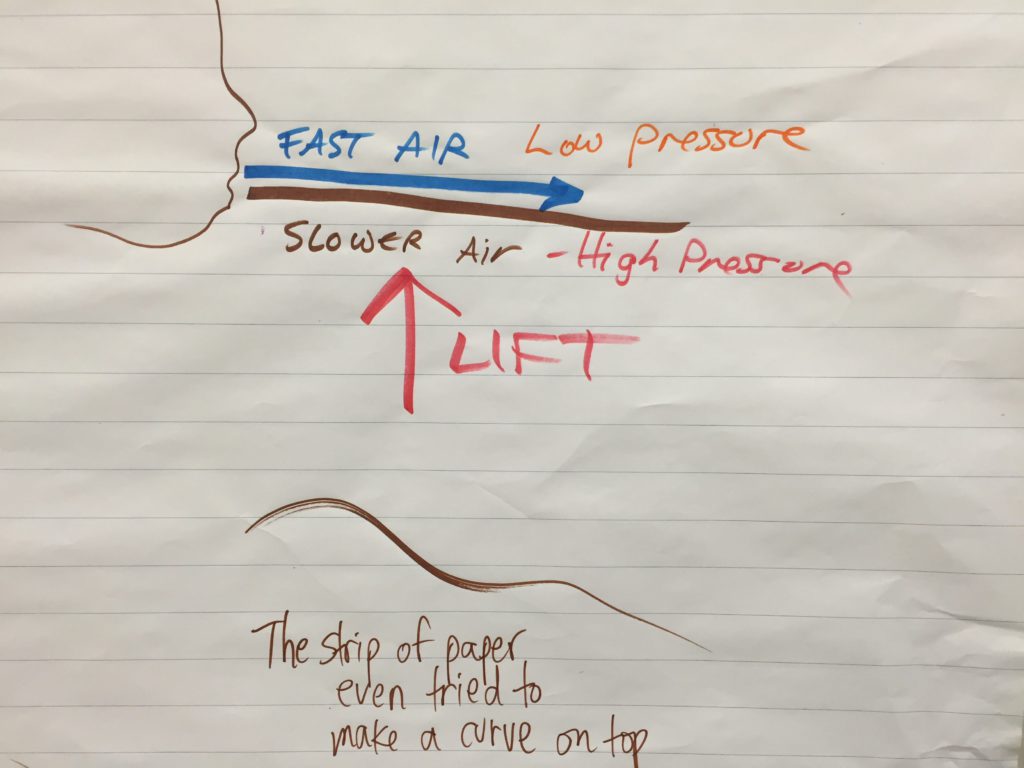 FAST AIR Low Pressure
SLOWER Air - High Pressure
LIFT
The strip of paper
even tried to
make a curve on top